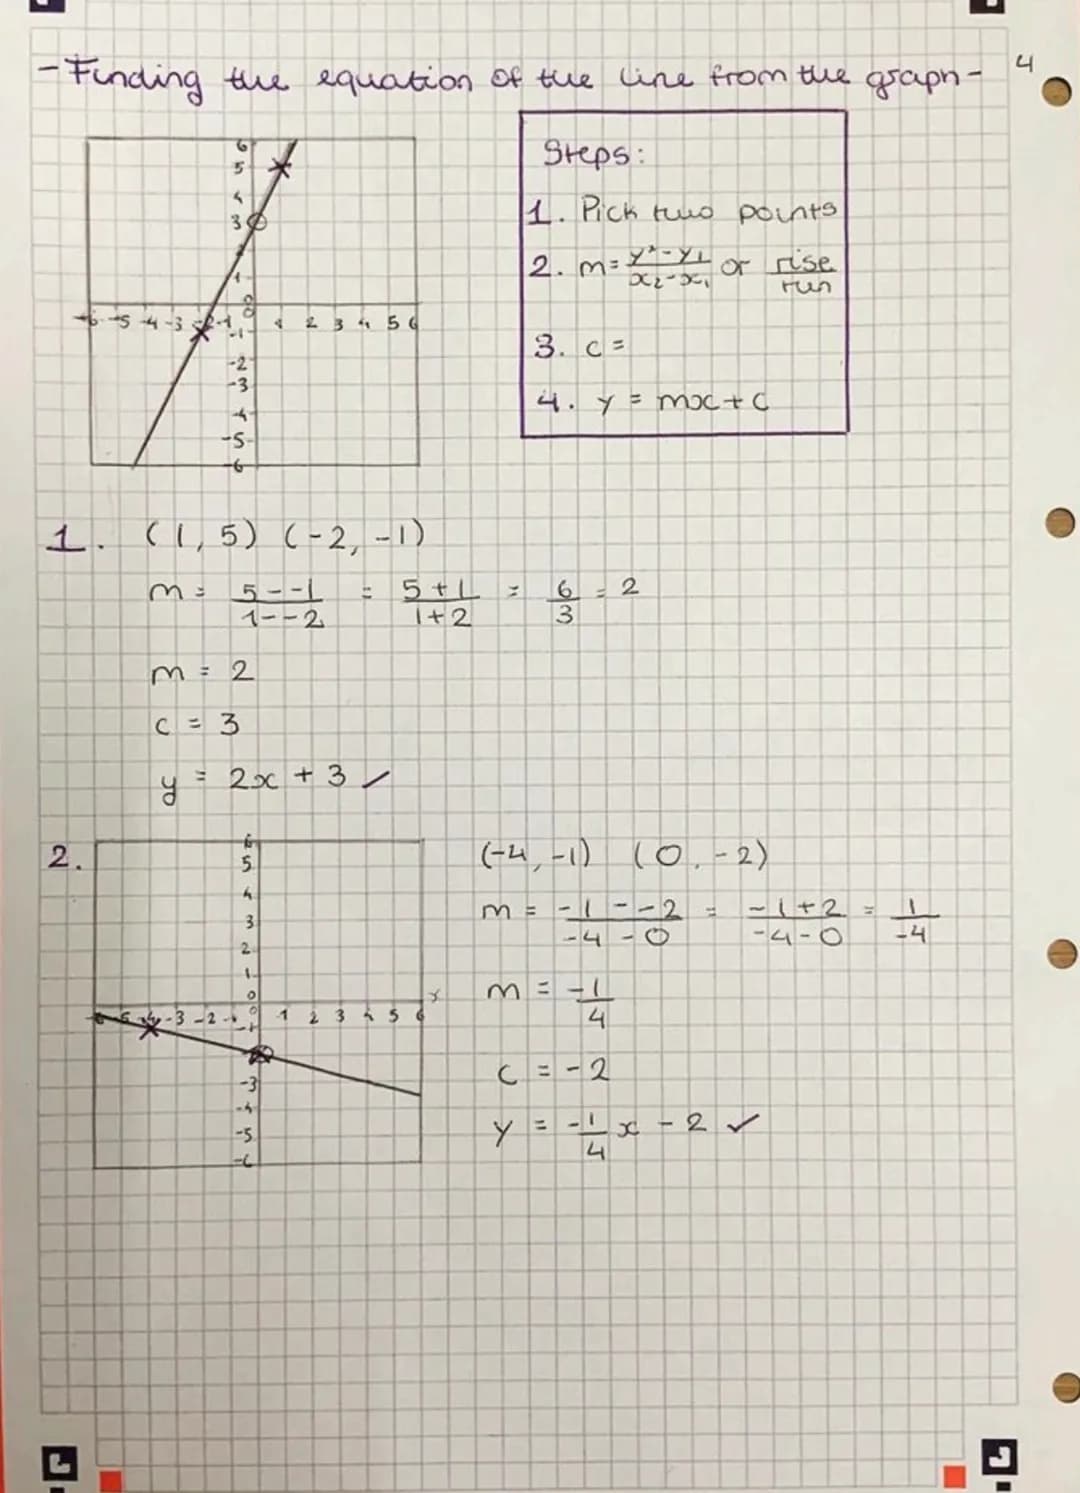 -Finding the equation of the line from the graph-
4
6
5
4
3
2
1
0
-6 -5 -4 -3 -2 -1 1 2 3 4 5 6
-1
-2
-3
-4
-5
-6
Steps:
1. Pick two points
2. m= y²-y₁/x₂-x₁ or rise/run
3. c =
4. y = mx+c
1. (1,5) (-2,-1)
m = 5--1/1--2 = 5+1/1+2 = 6/3 = 2
m = 2
c = 3
y = 2x + 3 ✓
2.
6
5
4
3
2
1
0
x
-6 -5 -4 -3 -2 -1 0 1 2 3 4 5 6
-1
-3
-4
-5
-6
(-4,-1) (0,-2)
m = -1--2/-4-0 = -1+2/-4-0 = 1/-4
m = -1/4
c = -2
y = -1/4 x - 2 ✓